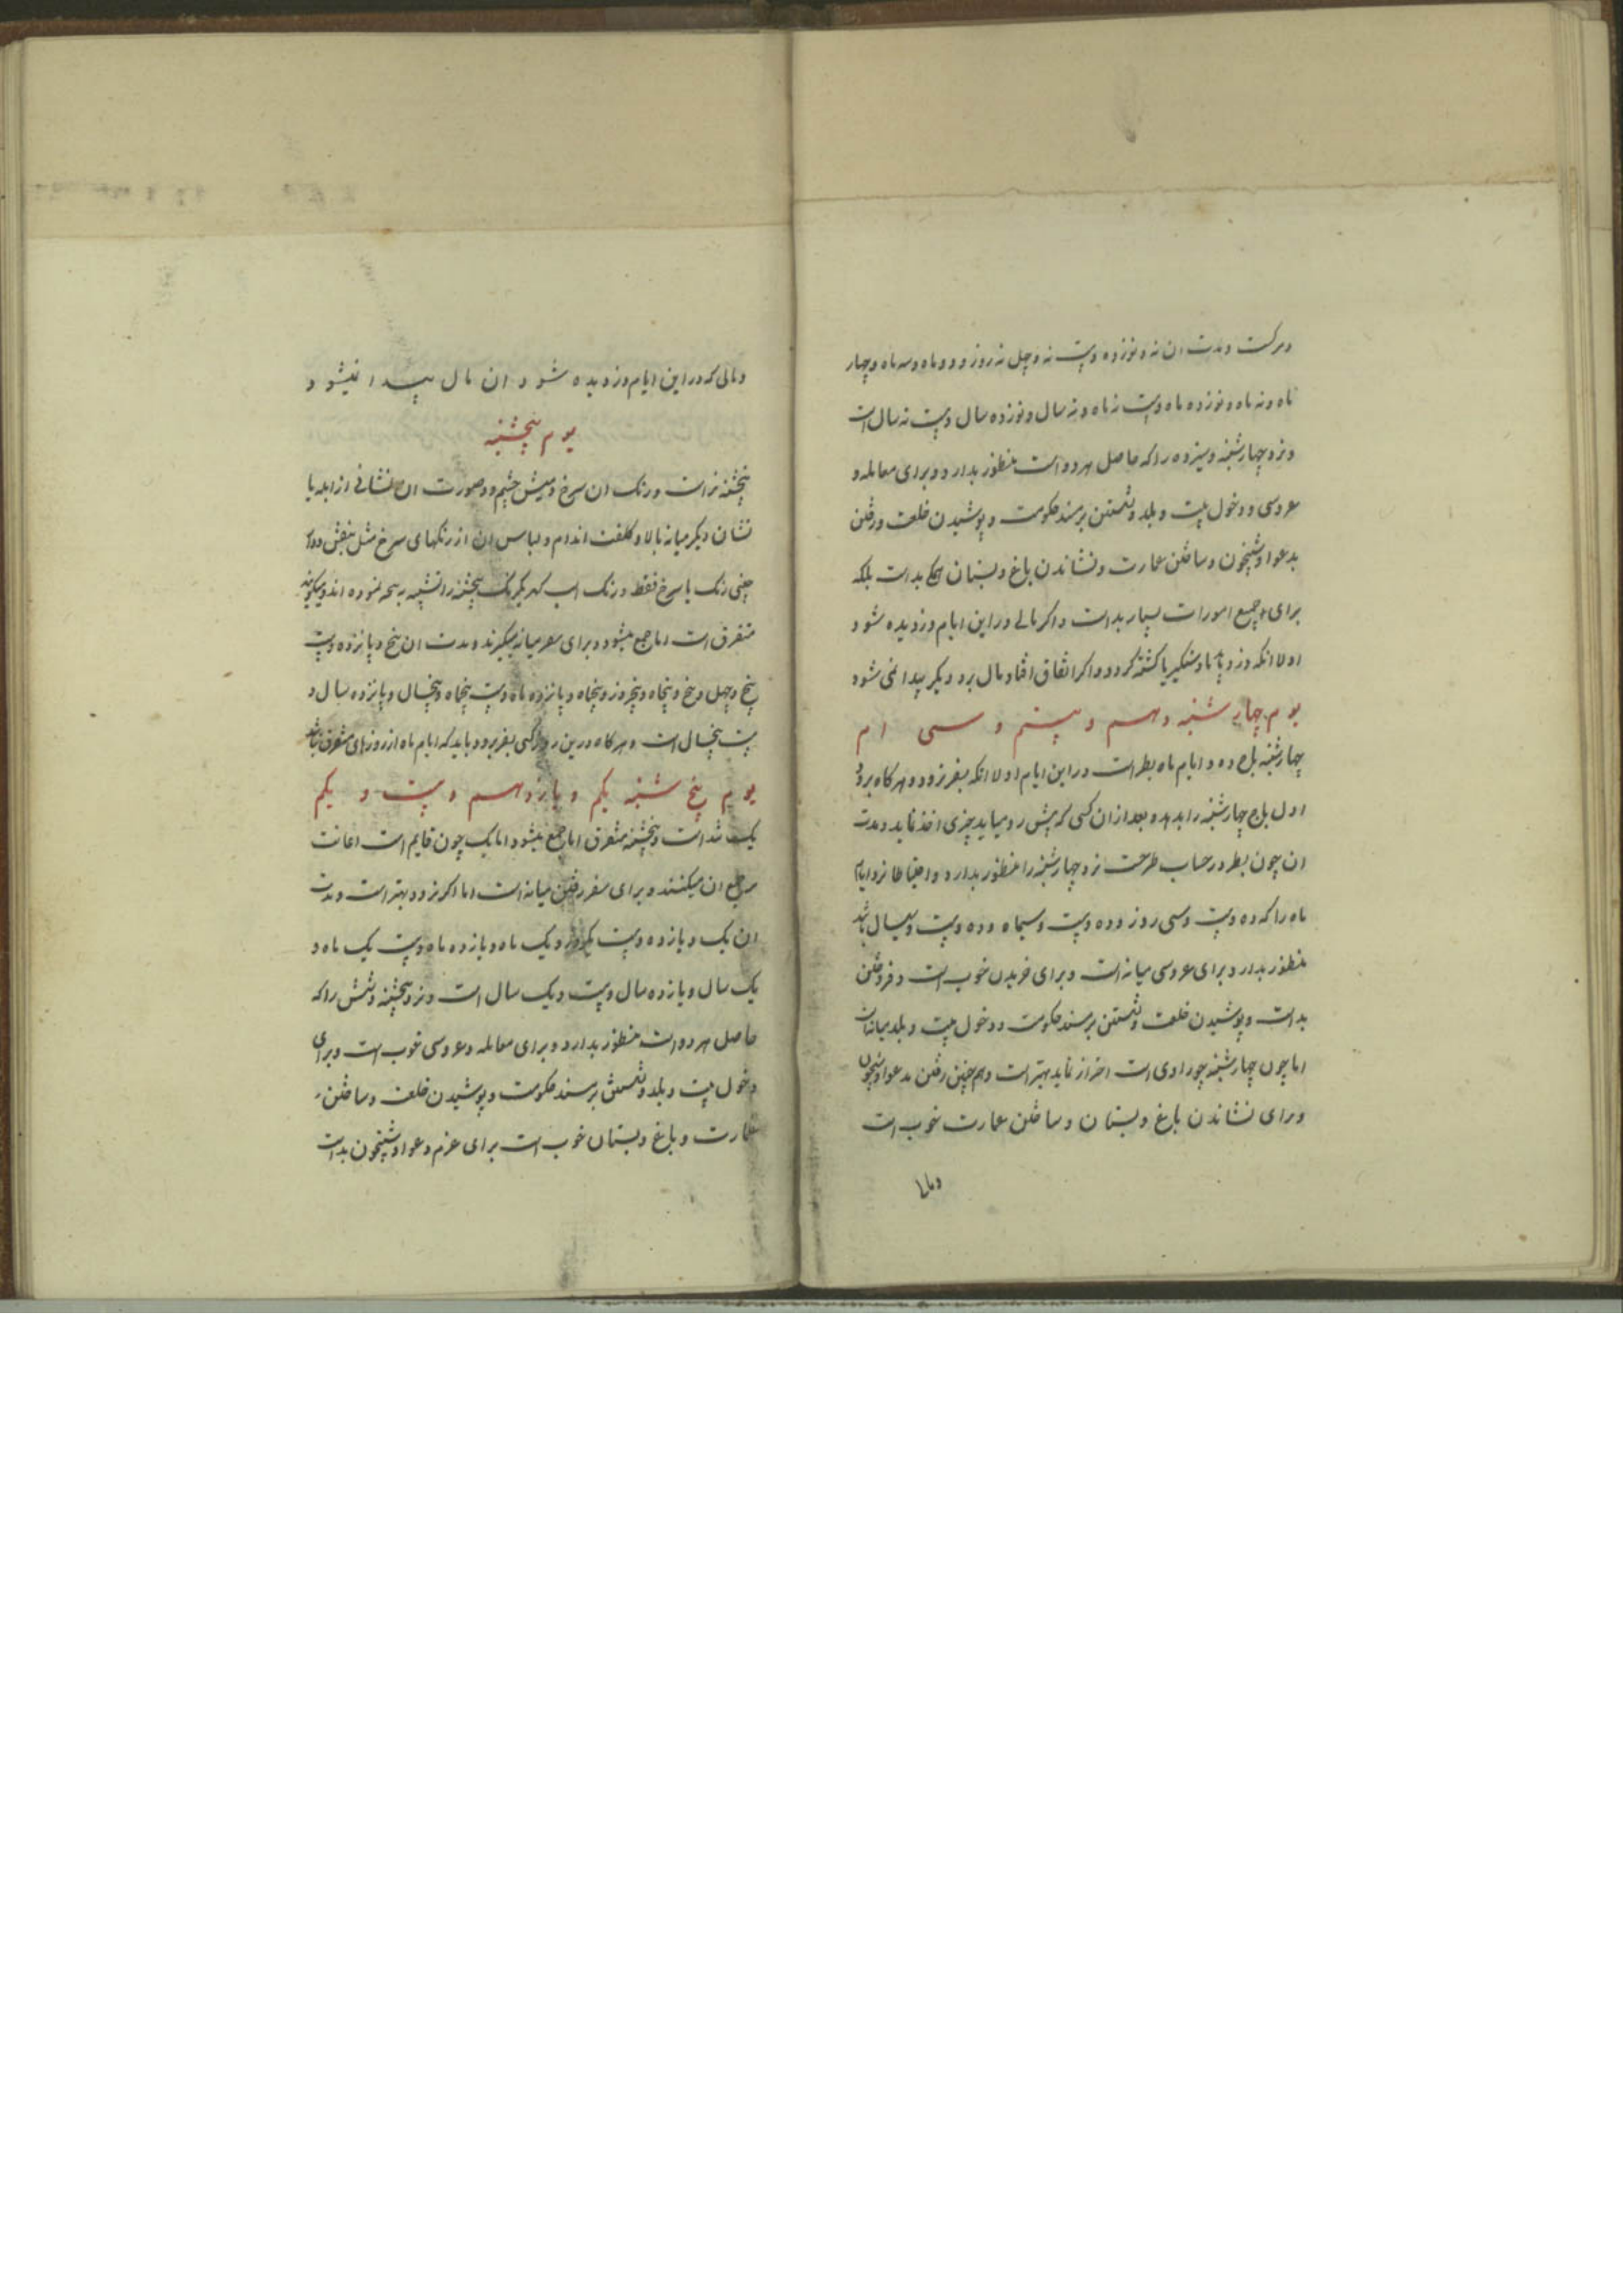 و مرکبت و مدت ان نه و نوزده و بیست نه و چهل نه روز و دو ماه و سه ماه و چهار
ماه و نه ماه و نوزده ماه و بیست نه ماه و نه سال و نوزده سال و بیست نه سال است
و نزد چهارشنبه و سیزده را که حاصل هر دو است منظور بدارد و برای معامله و
عروسی و دخول بیت و بلد و نشستن بر مسند حکومت و پوشیدن خلعت و رفتن
بدعوا و شبیخون و ساختن عمارت و نشاندن باغ و بستان همکی بد است بلکه
برای جمیع امورات بسیار بد است و اکر مالی در این ایام دزدیده شود
اولا انکه دزد یا دستکیر یا کشته کردد و اکر اتفاق افتاد مال برد دیکر پیدا نمی شود
یوم چهار شنبه دهم و بیستم و سی ام
چهارشنبه بلوح و ده و ایام ماه بطر است در این ایام اولا انکه بسفر نرود و هر کاه برود
اول باج چهارشنبه را بدهد و بعد از ان کسی که پیش رو میاید چیزی اخذ نماید و مدت
ان چون بطر در حساب طرحست نزد چهارشنبه را منظور بدارد و احتیاطا نزد ایام
ماه را که ده و بیست و سی روز و ده و بیست و سیماه و ده و بیست و سیسال باشد
منظور بدارد برای عروسی میانه است و برای خریدن خوب است و فروختن
بد است و پوشیدن خلعت و نشستن بر مسند حکومت و دخول بیت و بلد میانه است
اما چون چهارشنبه چور ادی است احتراز نماید بهتر است و همچنین رفتن بدعوا و شبیخون
و برای نشاندن باغ و بستان و ساختن عمارت خوب است
و مالی
و مالی که در این ایام دزدیده شود ان مال پیدا نمیشود
یوم پنجشنبه
پنجشنبه نر است و رنک ان سرخ و میش چشم و در صورت ان نشانی از ابله یا
نشان دیکر میانه بالا و کلفت اندام و لباس ان از رنکهای سرخ مثل بنفش و
چینی رنک یا سرخ فقط و رنک اسب کهر یکرنک پنجشنبه را تشبیه بر سحه نموده اند و میکویند
متفرق است اما جمع میشود و برای سفر میانه میکیرند و مدت ان پنج و پانزده و بیست
پنج و چهل و پنج و پنجاه و پنجروز و پنجاه و پانزده ماه و بیست پنجاه و پنجسال و پانزده سال و
بیست پنجسال است و هر کاه در این روز کسی بسفر برود باید که ایام ماه از روزهای متفرق نباشد
یوم پنج شنبه یکم و یازدهم و بیست و یکم
یک شد است و پنجشنبه متفرق اما جمع میشود اما یک چون قایم است اعانت
بر جمع ان میکنند و برای سفر رفتن میانه است اما اکر نرود بهتر است و مدت
ان یک و یازده و بیست یکروز و یک ماه و یازده ماه و بیست یک ماه و
یک سال و یازده سال و بیست و یک سال است و نزد پنجشنبه و شش را که
حاصل هر دو است منظور بدارد و برای معامله و عروسی خوب است و برای
دخول بیت و بلد و نشستن بر مسند حکومت و پوشیدن خلعت و ساختن
عمارت و باغ و بستان خوب است برای عزم دعوا و شبیخون بد است